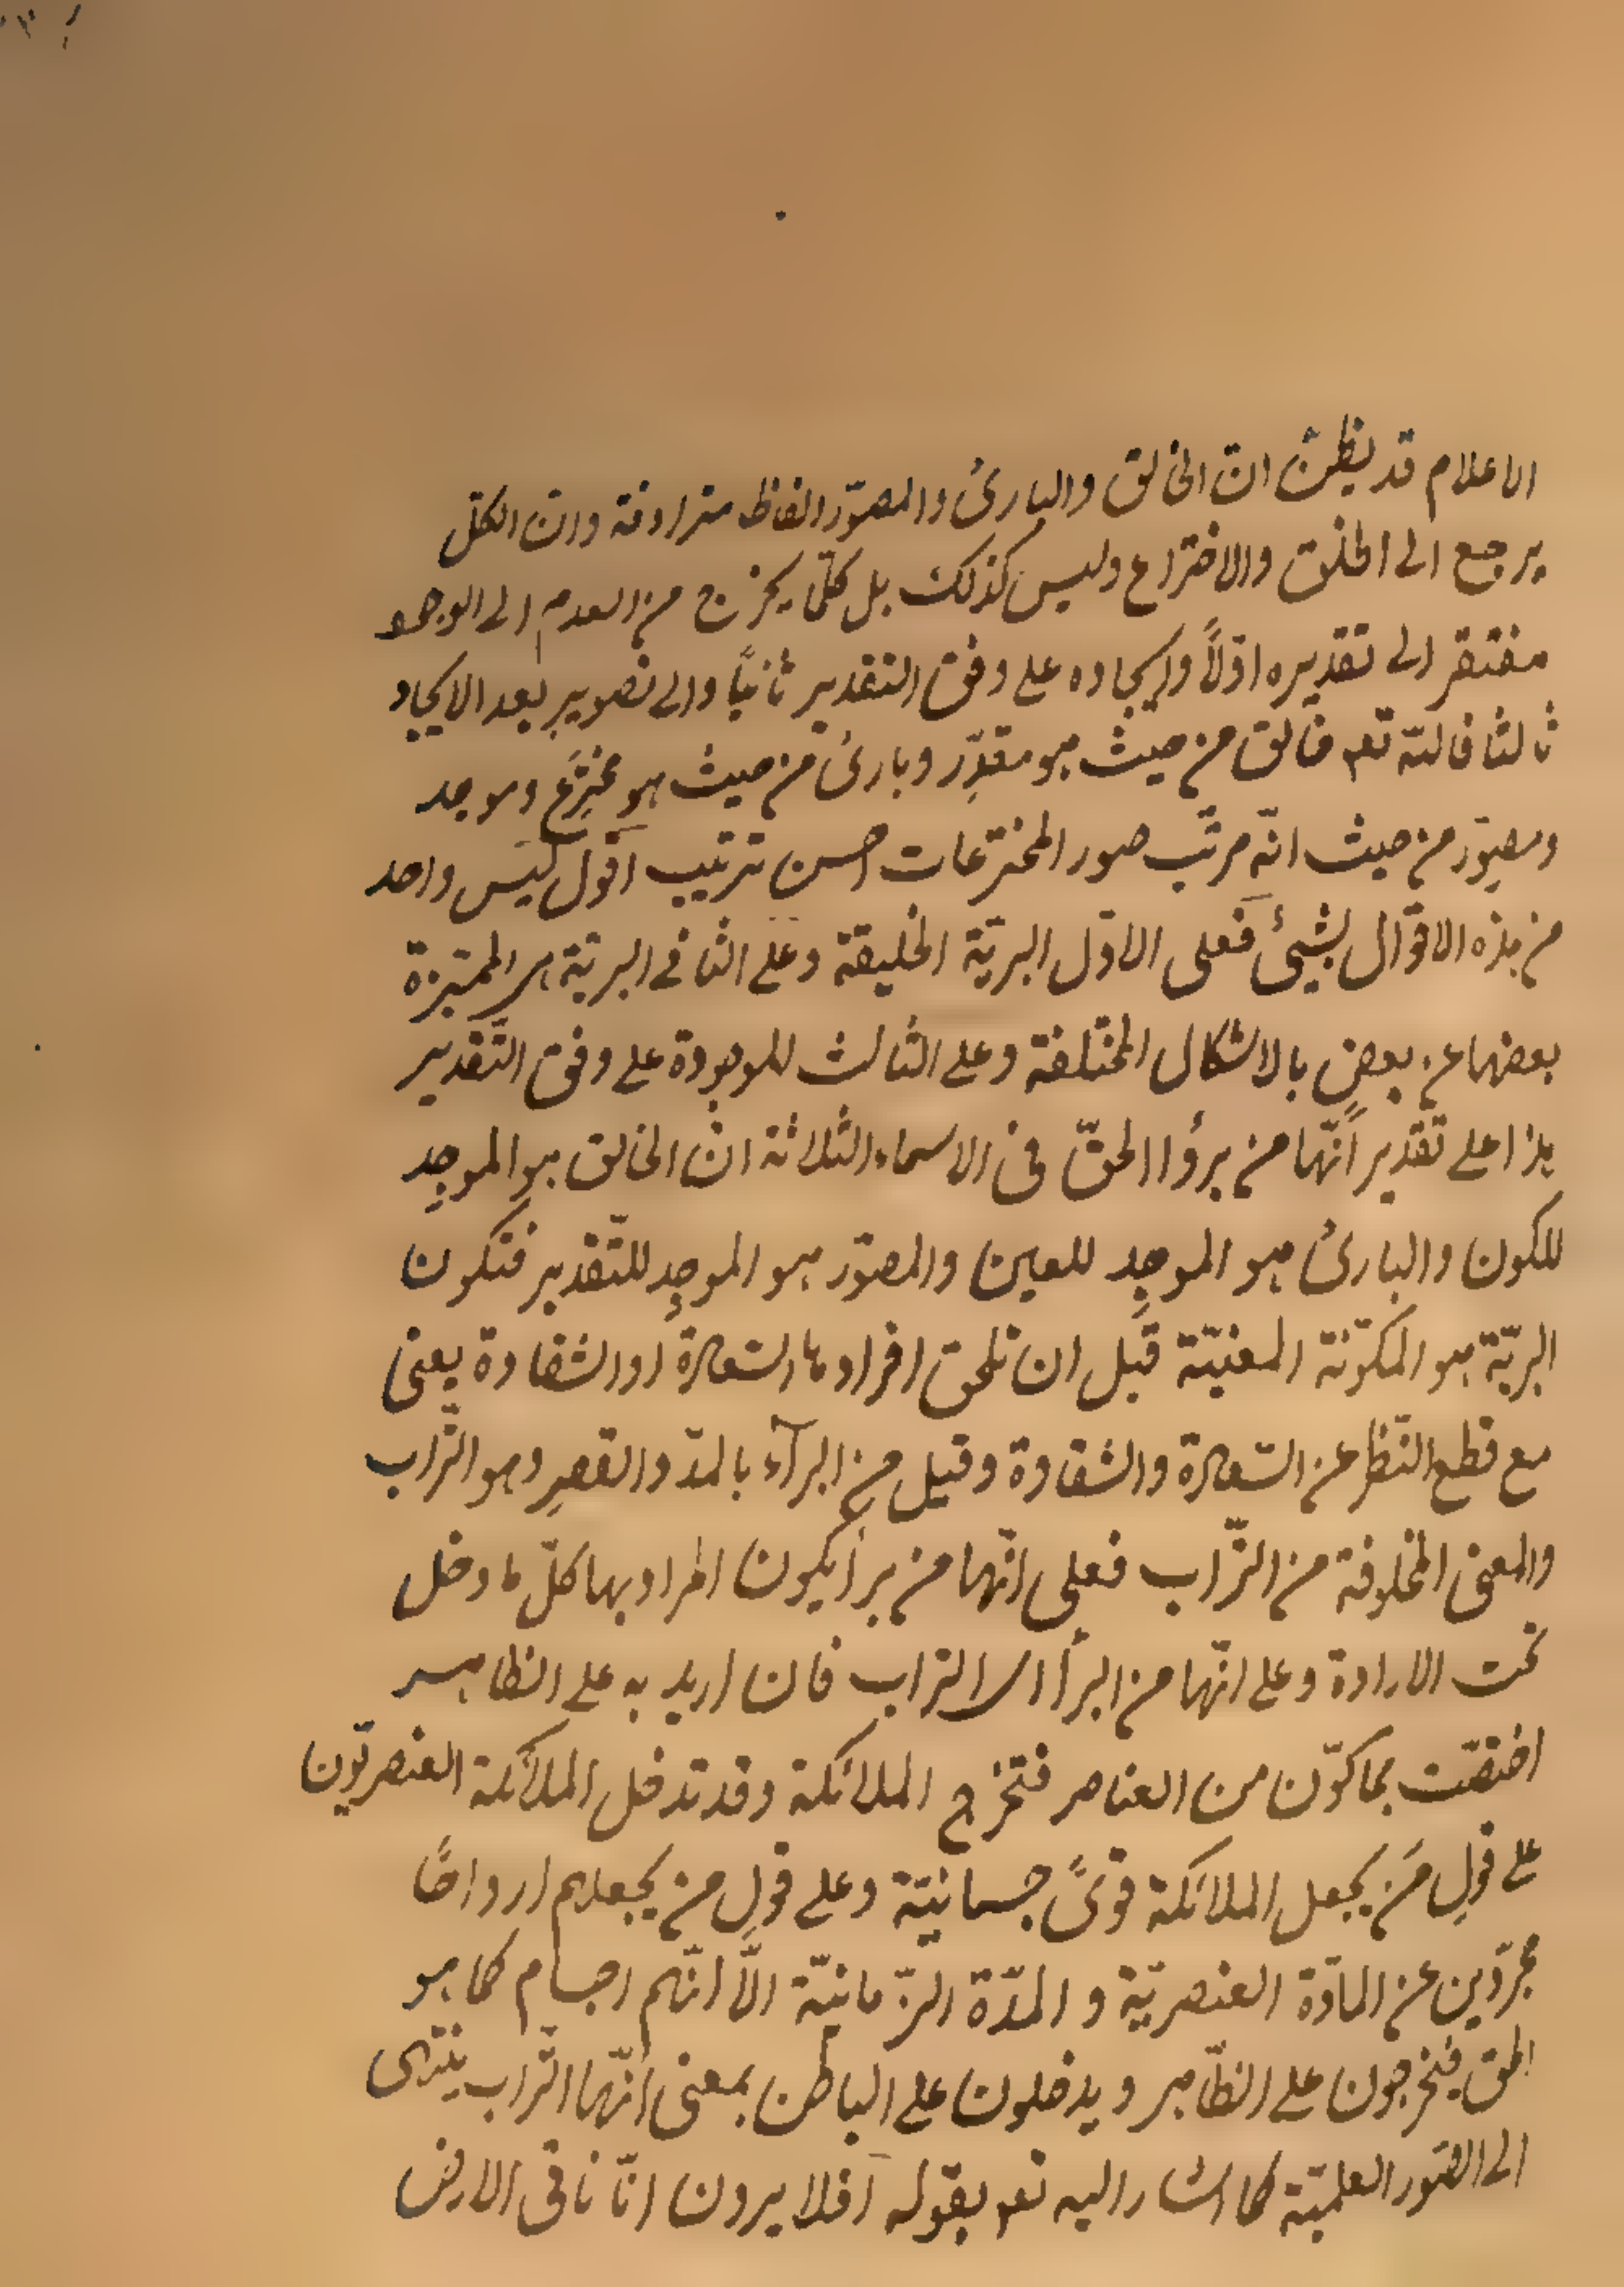 الاعلام قد يظنّ انّ الخالق والبارئ والمصوّر الفاظ مترادفة وان الكلّ
يرجع الى الخلق والاختراع وليس كذلك بل كلّما يخرج من العدم الى الوجود
مفتقر الى تقديره اوّلاً وايجاده على وفق التقدير ثانيًا والى تصوير بعد الايجاد
ثالثا فاللّه تعه خالق من حيث هو مقدِّر وبارئ من حيث هو مخترِع وموجد
ومصوّر من حيث انّه مرتّب صور المخترعات احسن ترتيب اقول ليس واحد
من هذه الاقوال بشيئ فعلى الاوّل البريّة الخليقة وعلى الثاني البريّة هى المتميزة
بعضها عن بعض بالاشكال المختلفة وعلى الثالث للموجودة على وفق التّقدير
هذا على تقدير انّها من برؤا الحقّ فى الاسماء الثلاثة انّ الخالق هو الموجِد
للكون والبارئ هو الموجِد للعين والمصوّر هو الموجِد للتّقدير فتكون
البريّة هو المكوّنة المعنيّة قبل ان تلحق افرادها السّعادة او الشقاوة يعنى
مع قطع النّظر عن السّعادة والشقاوة وقيل من البرآء بالمدّ والقصر وهو التّراب
والمعنى المخلوقة من التّراب فعلى انّها من برأ يكون المراد بها كلّ ما دخل
تحت الارادة وعلى انّها من البرأ اى التراب فان اريد به على الظاهر
اختصّت بما كوّن من العناصر فتخرج الملائكة وقد تدخل الملائكة العنصريّون
على قول مَن يجعل الملائكة قوىً جسمانيّة وعلى قول من يجعلهم ارواحًا
مجرّدين عن المادّة العنصريّة و المدّة الزّمانيّة الاّ انّهم اجسام كما هو
الحق فيخرجون على الظّاهر ويدخلون على الباطن بمعنى انّها التّراب ينتهى
الى الصّور العلميّة كما اشار اليه تعه بقوله افلا يرون انّا نأتى الارض